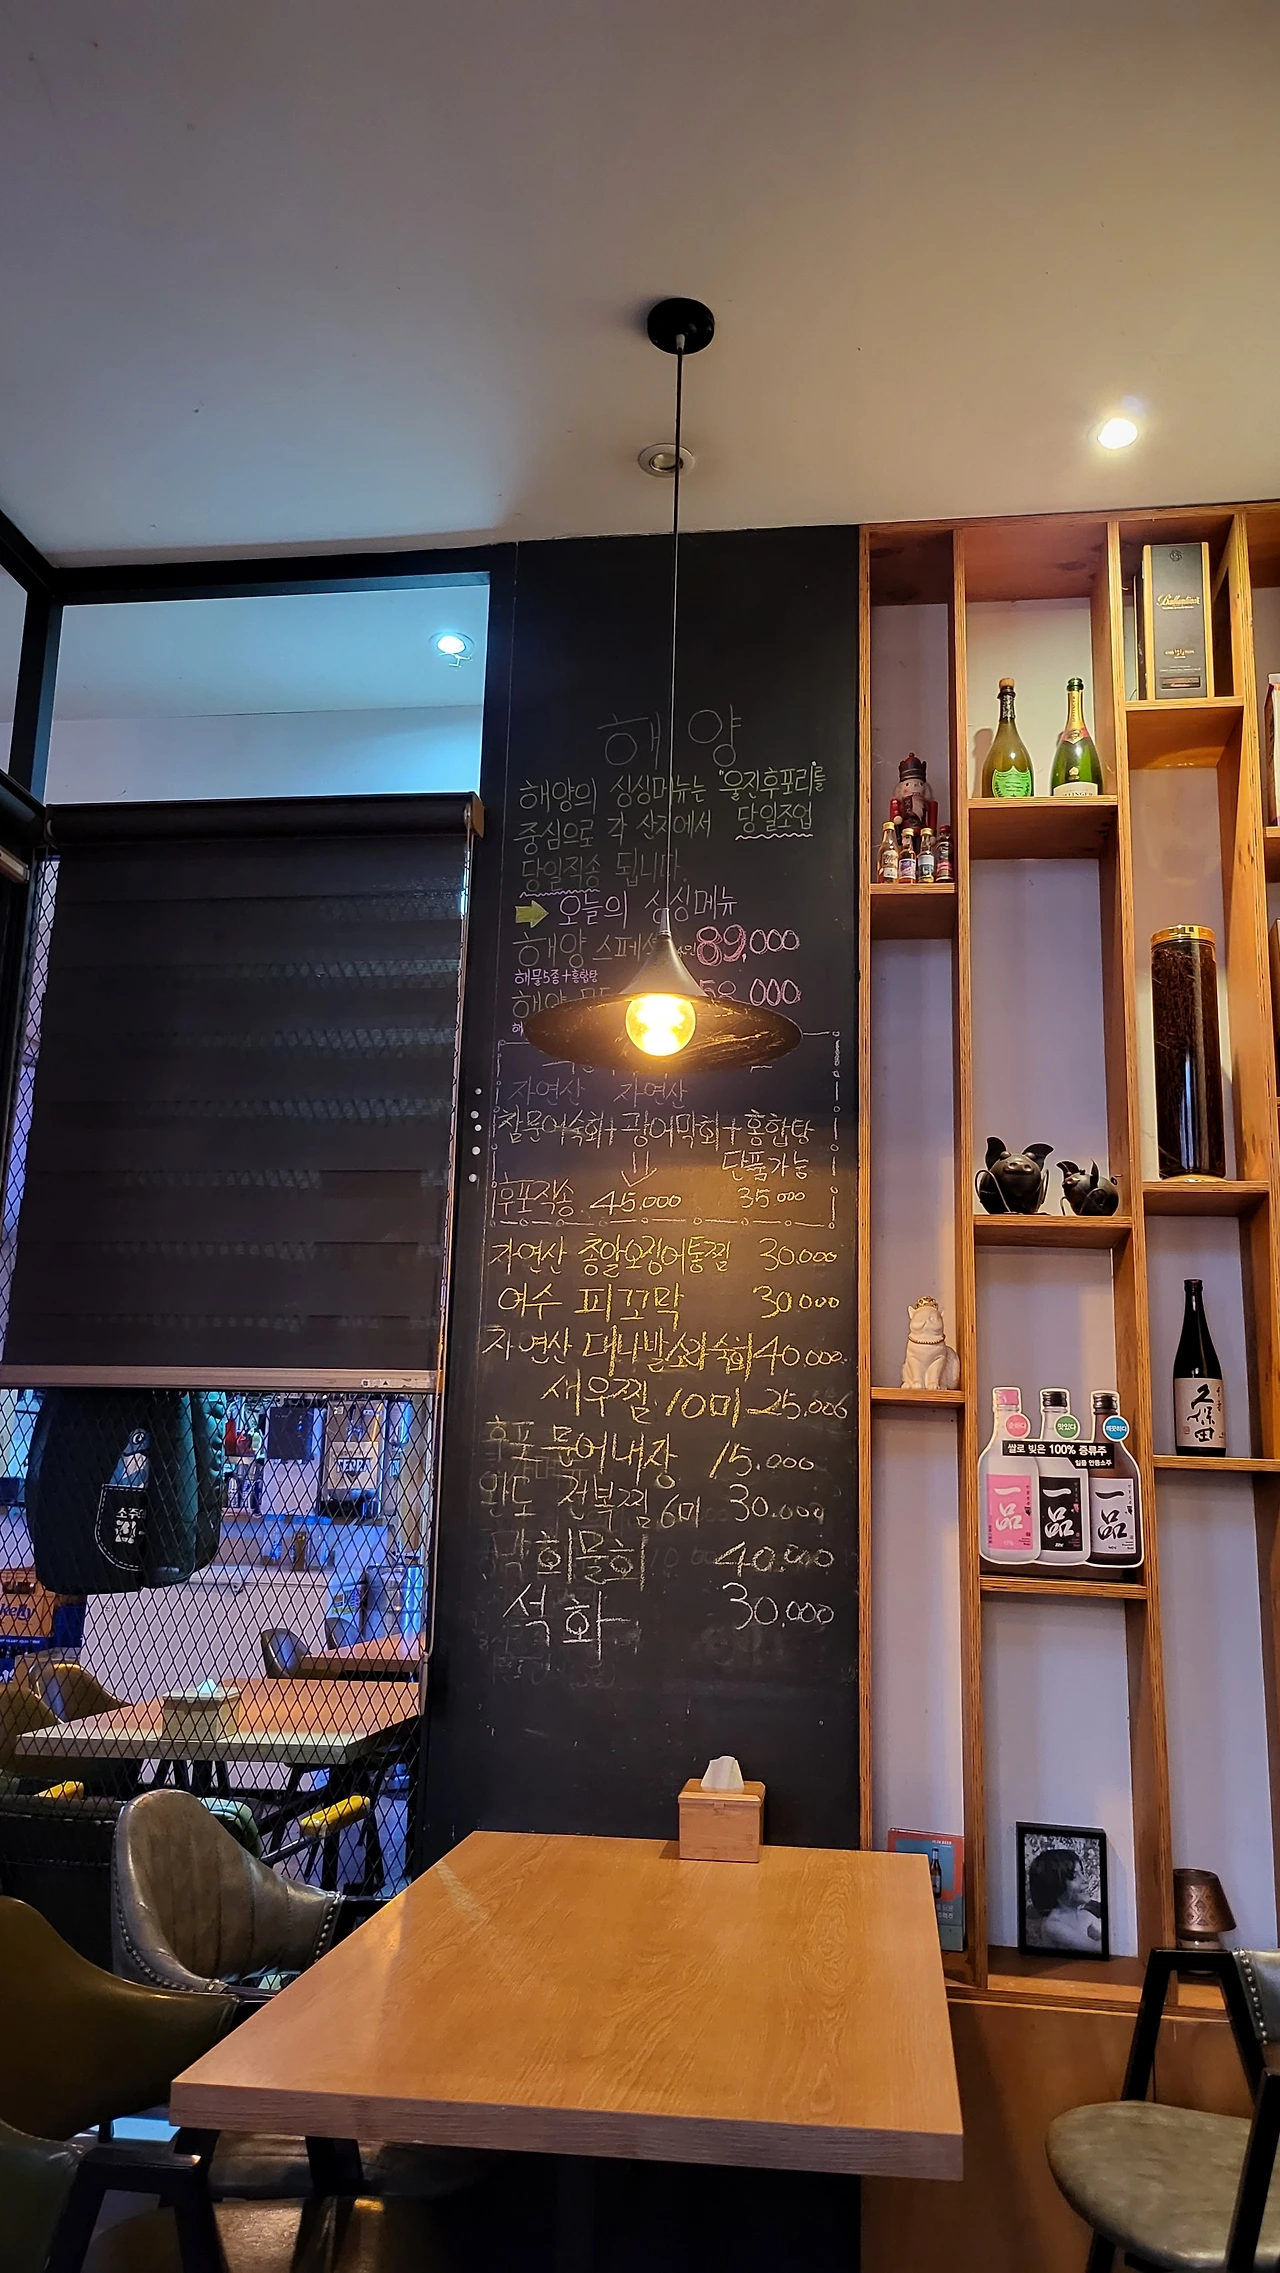 해양
해양의 싱싱메뉴는 "울진후포리"를
중심으로 각 산지에서 당일조업
당일직송 됩니다.
오늘의 싱싱메뉴
해양 스페셜 89,000
해물5종+홍합탕
해양 58,000
자연산 자연산
참문어숙회+광어막회+홍합탕
단품가능
후포직송 45.000 35.000
자연산 총알오징어통찜 30.000
여수 피꼬막 30.000
자연산 대나발소라숙회 40.000.
새우찜.10미 25.000
후포 문어내장 15.000
완도 전복찜 6미 30.000
막회물회 40.000
석화 30.000
Ballantine's
久保田
증류다
맛있다
깨끗하다
쌀로 빚은 100% 증류주
일품 안동소주
一品
一品
一品
KENRA
Kelly